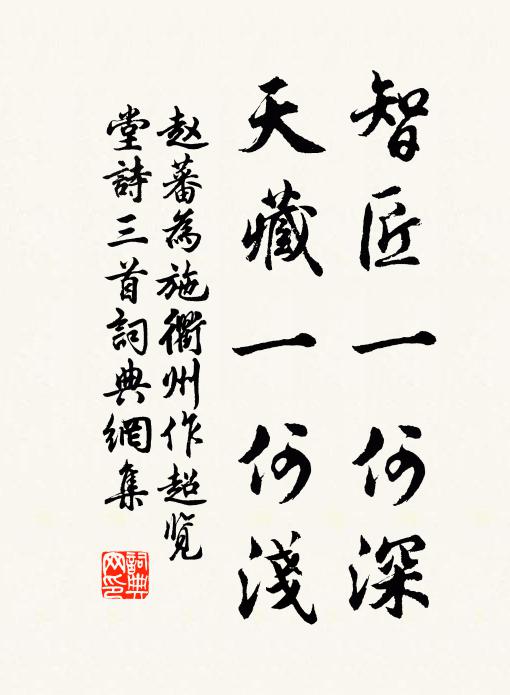 智匠一何深
天藏一何淺
赵蕃為施衢州作超览
堂詩三首詞典網集
詞典网印